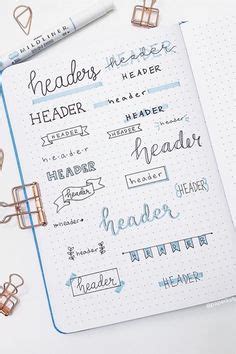 MILDLINER
headers
header
HEADER
HEADER
header
HEADER
HEADER
HEADER
header
header
HEADER
header
HEADER
HEADER
header
header
header
HEADER